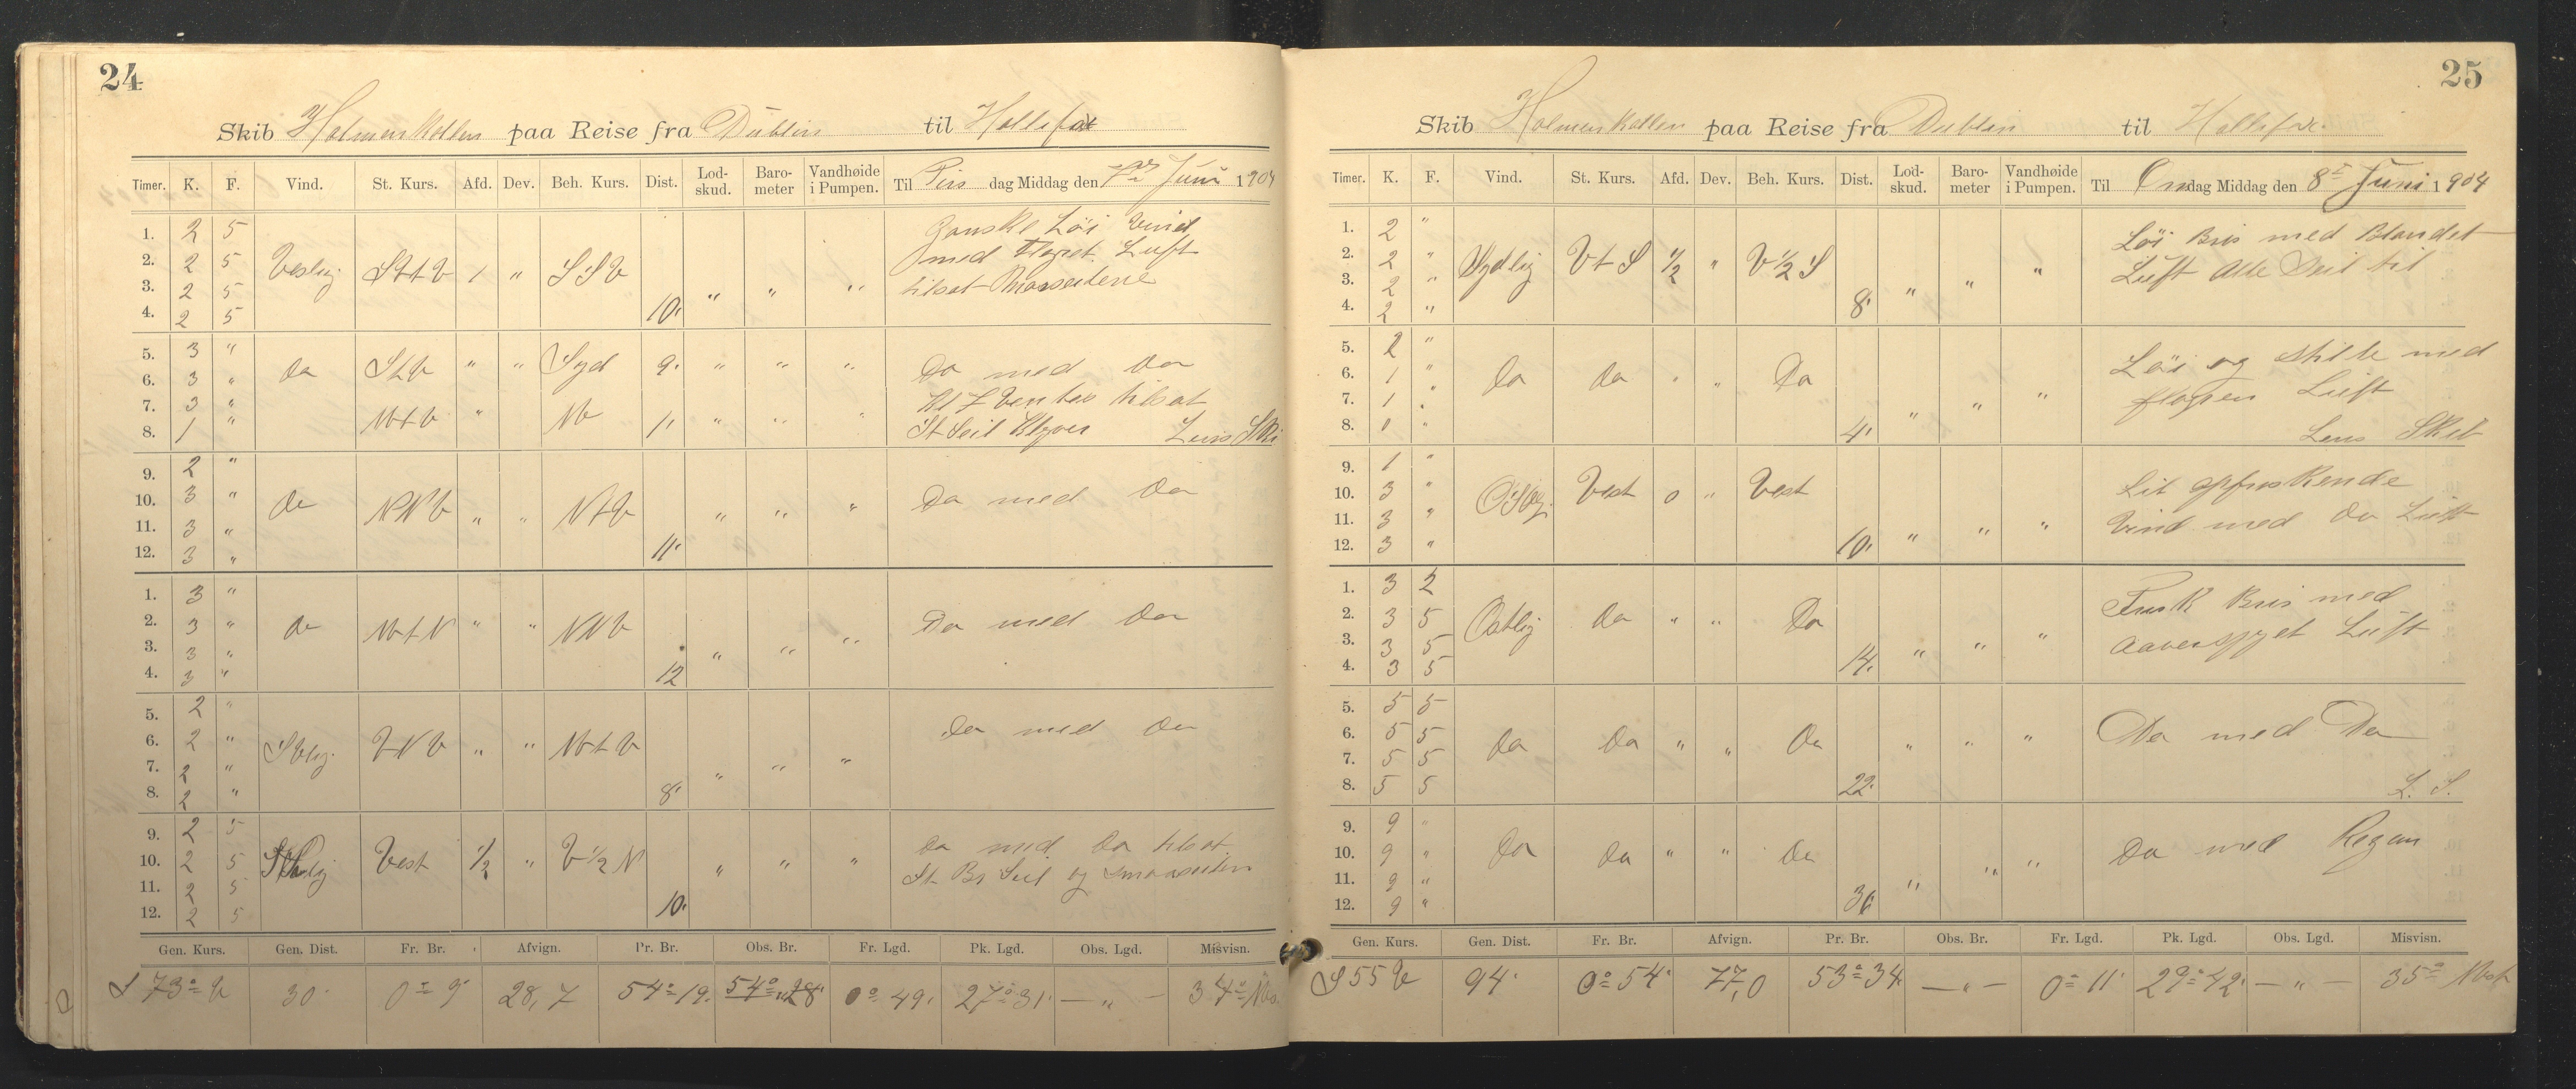 24
Skib Holmenkollen paa Reise fra Dublin til Hallifax
Timer. K. F. Vind. St. Kurs. Afd. Dev. Beh. Kurs. Dist. Lod-skud. Baro-meter Vandhøide i Pumpen. Til Tirs dag Middag den 7de Juni 1904
1. 2 5 Ganske Löi Vind
2. 2 5 Vestlig StV 1 " SSV med Flaget Luft
3. 2 5 " " " tilsat
4. 2 5 10.
5. 3 "
6. 3 " Do StV " " Syd 9. " " " Do med Do
7. 3 " tilsat
8. 1 " NVtV " NV 1. " " " St Seil Klyver Lens Ski
9. 2 "
10. 3 " Do NNV " " NtV " " " Do med Do
11. 3 "
12. 3 " 11.
1. 3 "
2. 3 " Do NVtN " " NNV " " " Do med Do
3. 3 "
4. 3 " 12
5. 2 " Do med Do
6. 2 " SVlig VNV " " NVtV
7. 2 " " " "
8. 2 " 8.
9. 2 5 Do med Do tilsat
10. 2 5 Vest 1/2 " V 1/2 N " " " St Br Seil og
11. 2 5
12. 2 5 10.
Gen. Kurs. Gen. Dist. Fr. Br. Afvign. Pr. Br. Obs. Br. Fr. Lgd. Pk. Lgd. Obs. Lgd. Misvisn.
S 73° V 30' 0° 9' 28,7 54° 19' 54° 28' 0° 49' 27° 31' — " — 34°
25
Skib Holmenkollen paa Reise fra Dublin til Hallifax.
Timer. K. F. Vind. St. Kurs. Afd. Dev. Beh. Kurs. Dist. Lod-skud. Baro-meter Vandhøide i Pumpen. Til Ons dag Middag den 8de Juni 1904
1. 2 " Löi Bris med Blandet
2. 2 " Sydlig VtS 1/2 " V 1/2 S " Luft Alle Seil til
3. 2 " " "
4. 2 " 8.
5. 2 " Löi og Stille med
6. 1 " Do Do " " Do Luft
7. 1 " " " "
8. 0 " 4. Lens Skib
9. 1 " Lit opfriskende
10. 3 " Vest 0 " Vest Vind med Do Luft
11. 3 " " " "
12. 3 " 10.
1. 3 2 Frisk Bris med
2. 3 5 Ostlig Do " " Do Luft
3. 3 5 " " "
4. 3 5 14.
5. 5 5
6. 5 5 Do Do " " Do " " " Do med Do
7. 5 5
8. 5 5 22. L. S.
9. 9 "
10. 9 " Do Do " " Do " " Do med Regn
11. 9 " "
12. 9 " 36
Gen. Kurs. Gen. Dist. Fr. Br. Afvign. Pr. Br. Obs. Br. Fr. Lgd. Pk. Lgd. Obs. Lgd. Misvisn.
S 55 V 94' 0° 54' 77,0 53° 34' — " — 0° 11' 29° 42' — " — 35° Vest